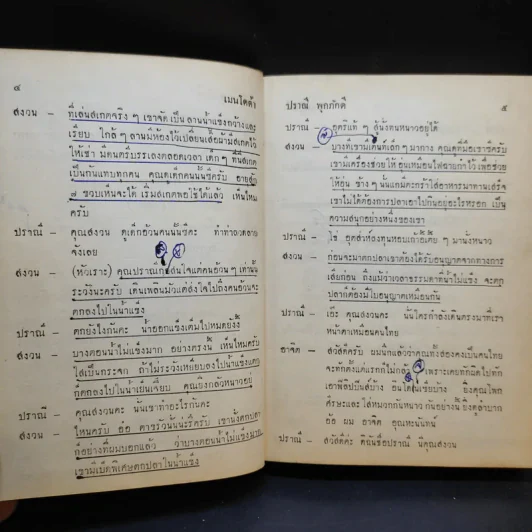 ๔
เมนโดต้า
สงวน – ที่เล่นสเกตจริง ๆ เขาจัดเป็น ลานน้ำแข็งกว้างและ
เรียบ ใกล้ ๆ ลานมีห้องไว้เปลี่ยนเสื้อผ้ามีสเกตไว้
ให้เช่า มีดนตรีบรรเลงตลอดเวลา เด็ก ๆ ที่นี่สเกต
เป็นกันแทบทุกคน คุณดูเด็กคนนั้นซิครับ อายุสัก
๗ ขวบเห็นจะได้ เริ่มสเกตพอใช้ได้แล้ว เห็นไหม
ครับ
ปราณี – คุณสงวน ดูเด็กอ้วนคนนั้นซิคะ ท่าทางตลาด
จังเลย
สงวน – (หัวเราะ) คุณปราณีสนใจแต่คนอ้วน ๆ เท่านั้น
ระวังนะครับ เดินเพลินมัวแต่ส่งใจไปถึงคนอ้วนจะ
ตกลงไปในน้ำแข็ง
ปราณี – ตกยังไงกันคะ น้ำออกแข็งเต็มไปหมดยังงี้
สงวน – บางตอนน้ำไม่แข็งมาก อย่างตรงนี้ เห็นไหมครับ
ใสเป็นกระจก ถ้าไม่ระวังเหยียบลงไปน้ำแข็งแตก
ก็ตกลงไปในน้ำเย็นเจี๊ยบ คุณยิ่งกลัวหนาวอยู่
ปราณี – คุณสงวนคะ นั่นเขาทำอะไรกันคะ
สงวน – ไหนครับ อ้อ ตาขรัวนั่นน่ะรึครับ เขานั่งตกปลา
ก็อย่างที่ผมบอกแล้ว ว่าบางตอนน้ำไม่แข็งมาก
เขามีเบ็ดพิเศษตกปลาในน้ำแข็ง
ปราณี พุกภักดี
๕
ปราณี – อุตริแท้ ๆ สู้นั่งทนหนาวอยู่ได้
สงวน – บางที่เขามีเต็นท์เล็ก ๆ มากาง คุณดูที่มือเขาซิครับ
เขามีเครื่องช่วยให้อุ่นเหมือนไฟฉายกำไว้เพื่อช่วย
ให้อุ่น ข้าง ๆ นั่นแกมีตะกร้าใส่อาหารมาทานเสร็จ
เขาไม่ได้ต้องการปลาเอาไปกินอยู่อะไรหรอก เป็น
ความสุขอย่างหนึ่งของเขา
ปราณี – ไฮ้ อุตส่าห์ลงทุนหอบเก้าอี้เตี้ย ๆ มานั่งหนาว
สงวน – ก่อนจะมาตกปลาเขาต้องได้รับอนุญาตจากทางการ
เสียก่อน ถึงแม้ว่าเวลาธรรมดาที่น้ำไม่แข็ง จะตก
ปลาก็ต้องมีใบอนุญาตเหมือนกัน
ปราณี – เอ๊ะ คุณสงวนคะ นั่นใครกำลังเดินตรงมาที่เรา
หน้าตาเหมือนคนไทย
อาจิต – สวัสดีครับ ผมนึกแล้วว่าคุณทั้งสองคงเป็นคนไทย
จะทักตั้งแต่แรกก็ไม่กล้า เพราะเคยทักผิดไปทัก
เอาฟิลิปปินส์บ้าง อินโดนีเซียบ้าง ยิ่งคุณโพก
ศีรษะและ ใส่หมวกกันหนาว กันอย่างนี้ ยิ่งดูลำบาก
อ้อ ผม อาจิต อุณหะนันทน์
ปราณี – สวัสดีค่ะ ดิฉันชื่อปราณี นี่คุณสงวน